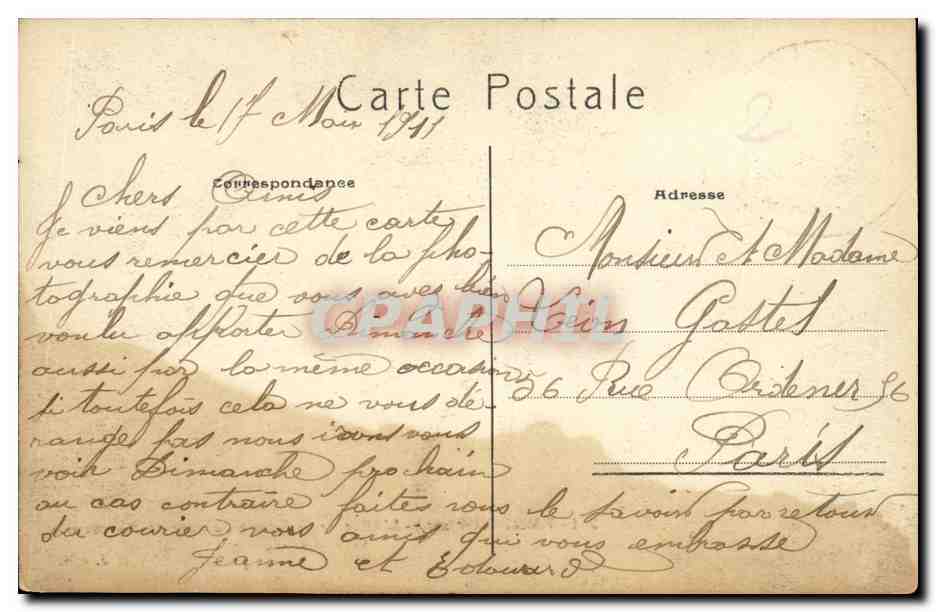 Carte Postale
Paris le 17 Mars 1911
Correspondance
Chers Amis
Je viens par cette carte
vous remercier de la pho-
tographie que vous aves bien
voulu apporter Dimanche
aussi par la même occasion
si toutefois cela ne vous dé-
range pas nous irons vous
voir Dimanche prochain
au cas contraire faites nous le savoir par retour
du courier vos amis qui vous embrasse
Jeanne et Edouard
Adresse
Monsieur et Madame
Léon Gastel
56 Rue Ordener 56
Paris
CPAPHIL